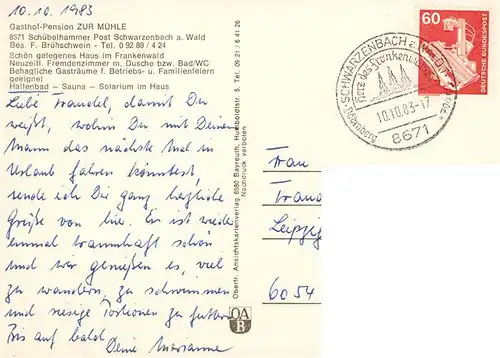 10.10.1983
Gasthof-Pension ZUR MÜHLE
8571 Schübelhammer Post Schwarzenbach a. Wald
Bes. F. Brühschwein - Tel. 0 92 89 / 4 24
Schön gelegenes Haus im Frankenwald
Neuzeitl. Fremdenzimmer m. Dusche bzw. Bad/WC
Behagliche Gasträume f. Betriebs- u. Familienfeiern
geeignet
Hallenbad — Sauna — Solarium im Haus
Liebe Traudel, damit Du
weißt, wohin Du mit Deinem
Mann das nächste Mal in
Urlaub fahren könntest,
sende ich Dir ganz herzliche
Grüße von hier. Es ist wieder
einmal traumhaft schön
und wir genießen es, viel
zu wandern, zu schwimmen
und riesige Portionen zu futtern
Bis auf bald
Deine Marianne
Oberfr. Ansichtskartenverlag 8580 Bayreuth, Humboldtstr. 5, Tel. 09 21 / 6 41 26
Nachdruck verboten
OA
B
SCHWARZENBACH a.
Herz des Frankenwaldes
10.10.83-17
8671
60
DEUTSCHE BUNDESPOST
Frau
Leipzig
6054